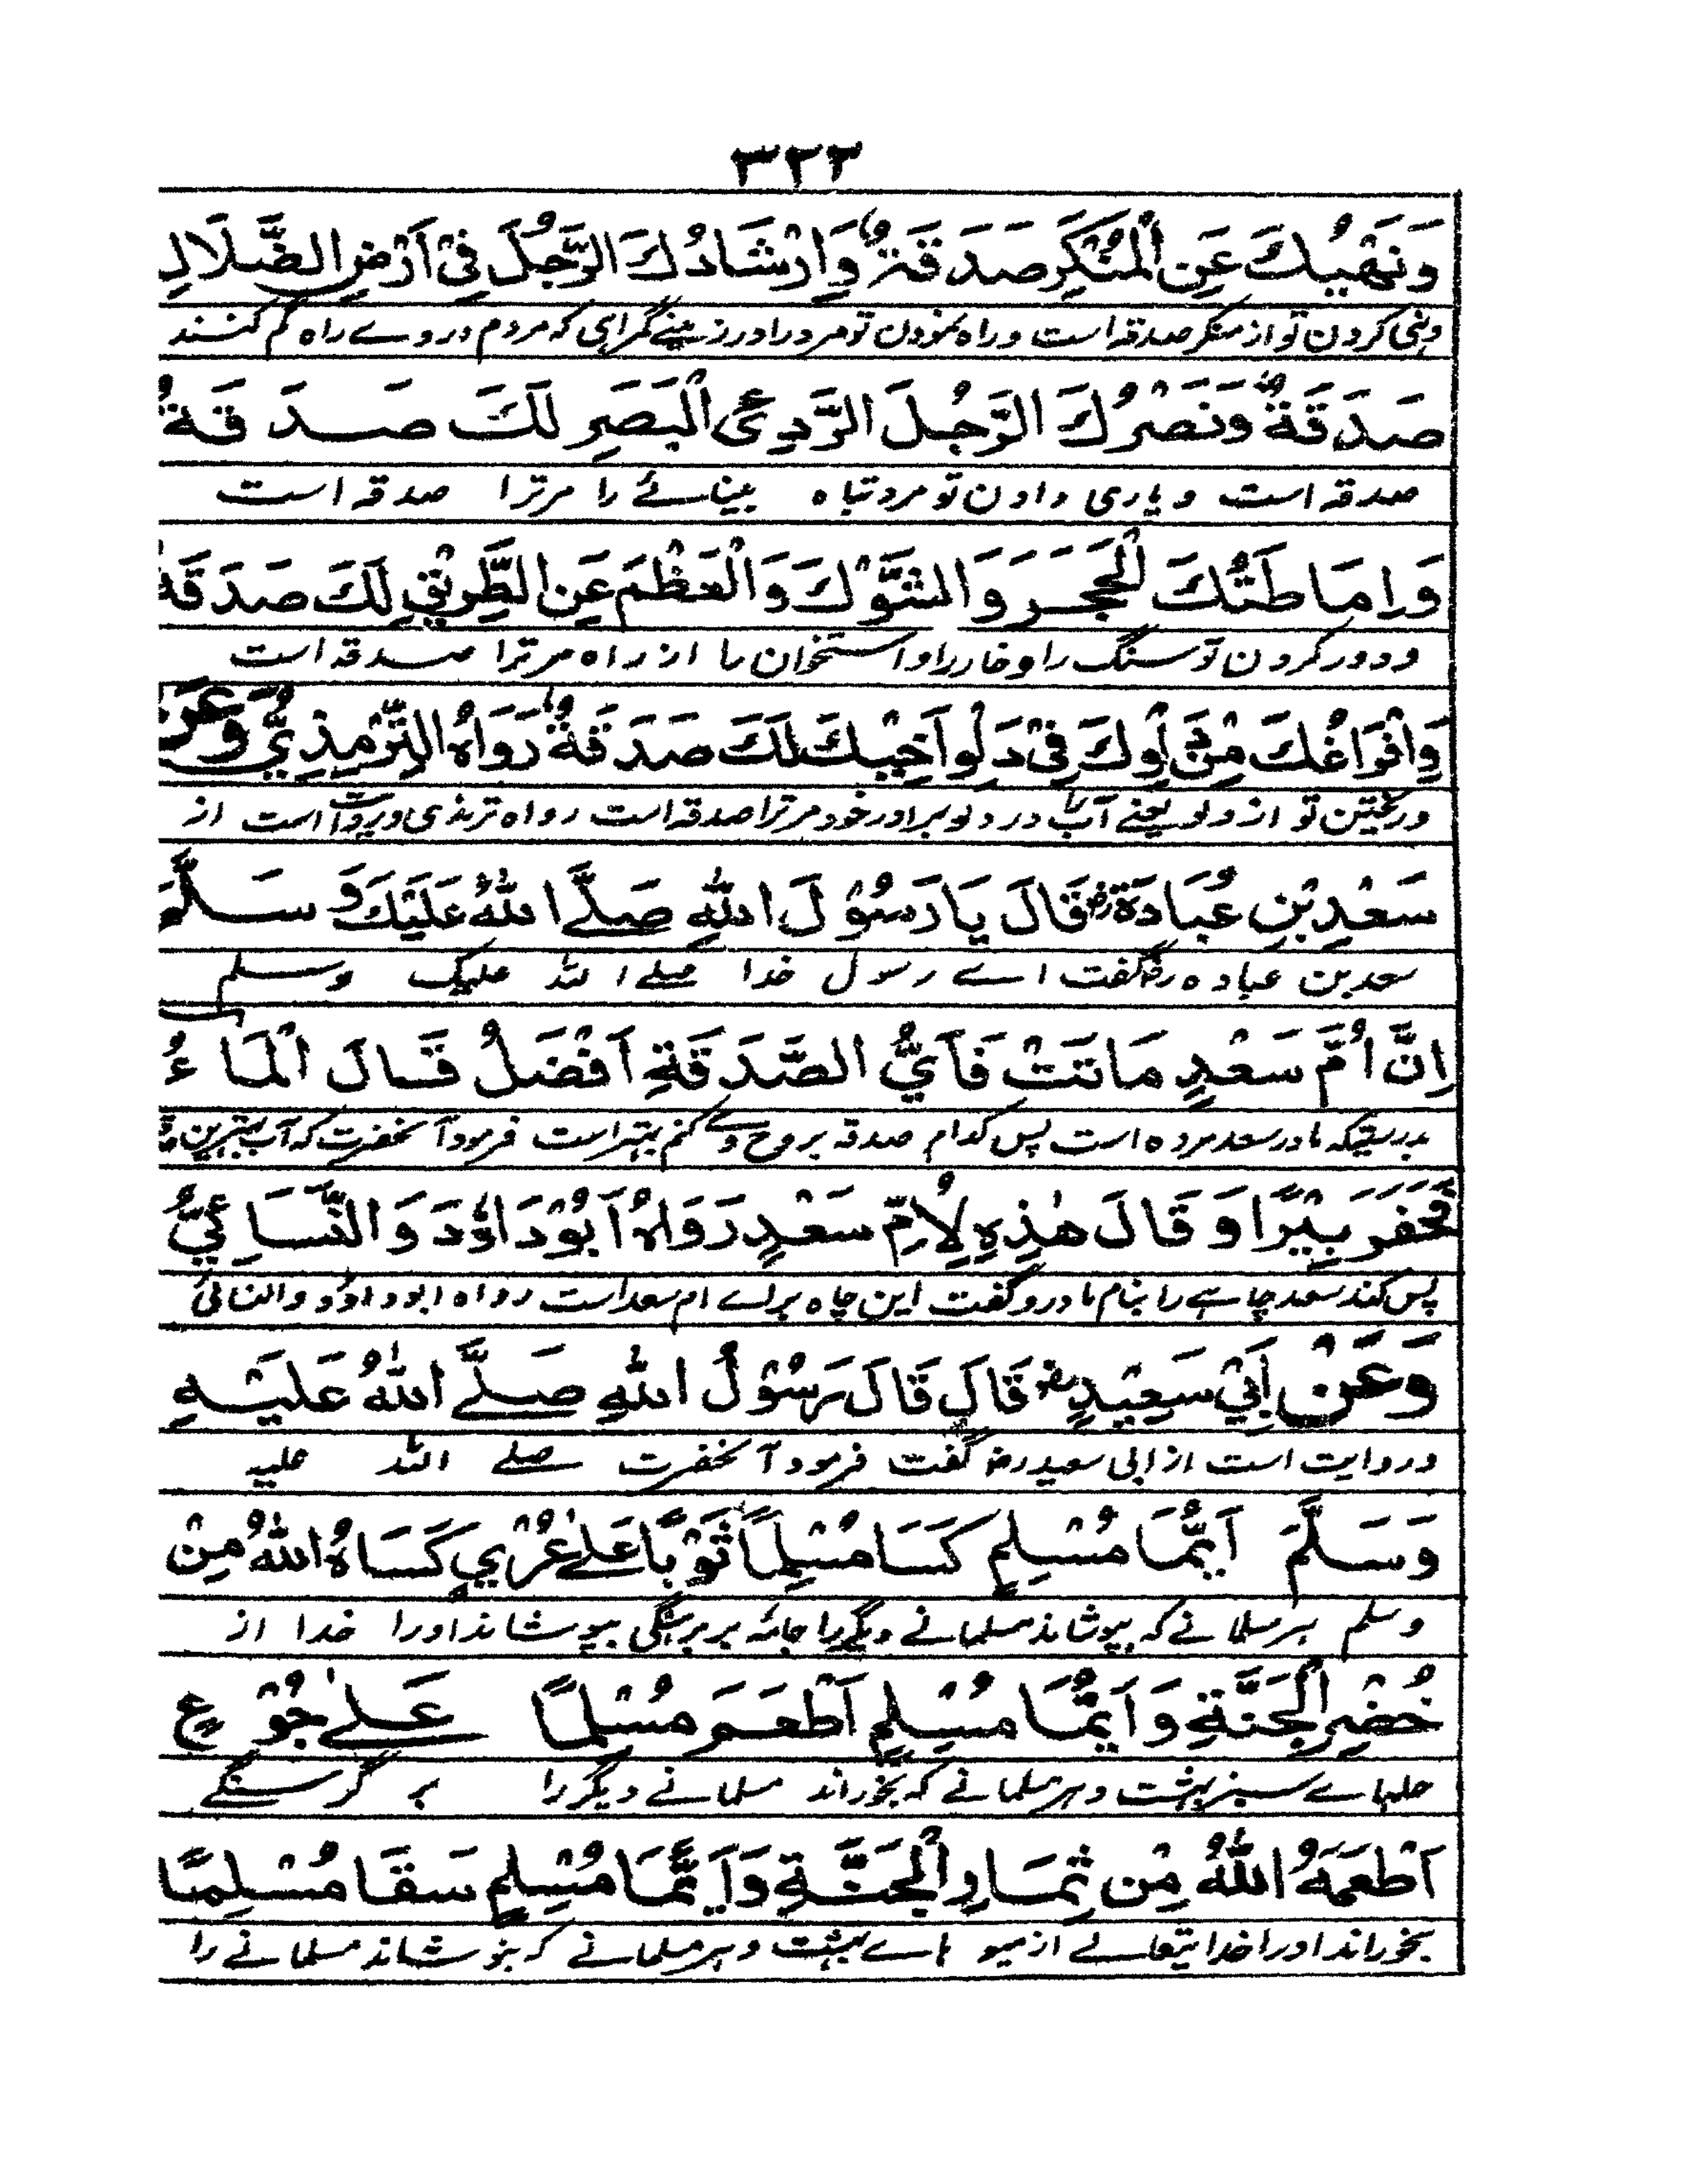 ٣٢٢
وَنَهْيُكَ عَنِ الْمُنْكَرِ صَدَقَةٌ وَاِرْشَادُكَ الرَّجُلَ فِيْ اَرْضِ الضَّلَالِ
ونہی کردن تو از منکر صدقہ است وراہ نمودن تو مرد را در زمینے گمراہی کہ مردم در وے راہ گم کنند
صَدَقَةٌ وَنَصْرُكَ الرَّجُلَ الرَّدِيَّ الْبَصَرِ لَكَ صَدَقَةٌ
صدقہ است ویاری دادن تو مرد تباہ بینائے را مر ترا صدقہ است
وَاِمَاطَتُكَ الْحَجَرَ وَالشَّوْكَ وَالْعَظْمَ عَنِ الطَّرِيْقِ لَكَ صَدَقَةٌ
ودور کردن تو سنگ را و خار را و استخوان را از راہ مر ترا صدقہ است
وَاِفْرَاغُكَ مِنْ دَلْوِكَ فِيْ دَلْوِ اَخِيْكَ لَكَ صَدَقَةٌ رَوَاهُ التِّرْمِذِيُّ وَعَنْ
وریختن تو از دلو یعنے آب در دلو برادر خود مر ترا صدقہ است رواہ ترمذی وروایت است از
سَعْدِ بْنِ عُبَادَةَ رض قَالَ يَا رَسُوْلَ اللهِ صَلَّے اللهُ عَلَيْكَ وَسَلَّمَ
سعد بن عبادہ رض گفت اے رسول خدا صلے اللہ علیک وسلم
اِنَّ اُمَّ سَعْدٍ مَاتَتْ فَاَيُّ الصَّدَقَةِ اَفْضَلُ قَالَ الْمَاءُ
بدرستیکہ مادر سعد مردہ است پس کدام صدقہ بروح وے کنم بہتر است فرمود آنحضرت کہ آب بہترین
فَحَفَرَ بِيْرًا وَقَالَ هٰذِهِ لِاُمِّ سَعْدٍ رَوَاهُ اَبُوْدَاوٗدَ وَالنَّسَاءِيُّ
پس کند سعد چاہے را بنام مادر و گفت این چاہ براے ام سعد است رواہ ابو داؤد والنسائی
وَعَنْ اَبِيْ سَعِيْدٍ رض قَالَ قَالَ رَسُوْلُ اللهِ صَلَّے اللهُ عَلَيْهِ
وروایت است از ابی سعید رض گفت فرمود آنحضرت صلے اللہ علیہ
وَسَلَّمَ اَيُّمَا مُسْلِمٍ كَسَا مُسْلِمًا ثَوْبًا عَلٰے عُرْيٍ كَسَاهُ اللهُ مِنْ
وسلم ہر مسلمانے کہ بپوشاند مسلمانے دیگر را جامہ بر برہنگی بپوشاند اورا خدا از
خُضْرِ الْجَنَّةِ وَاَيُّمَا مُسْلِمٍ اَطْعَمَ مُسْلِمًا عَلٰے جُوْعٍ
حلہاے سبز بہشت و ہر مسلمانے کہ بخوراند مسلمانے دیگر را بر گرسنگے
اَطْعَمَهُ اللهُ مِنْ ثِمَارِ الْجَنَّةِ وَاَيُّمَا مُسْلِمٍ سَقَا مُسْلِمًا
بخوراند اورا خدایتعالے از میو ہاے بہشت و ہر مسلمانے کہ بنوشاند مسلمانے را